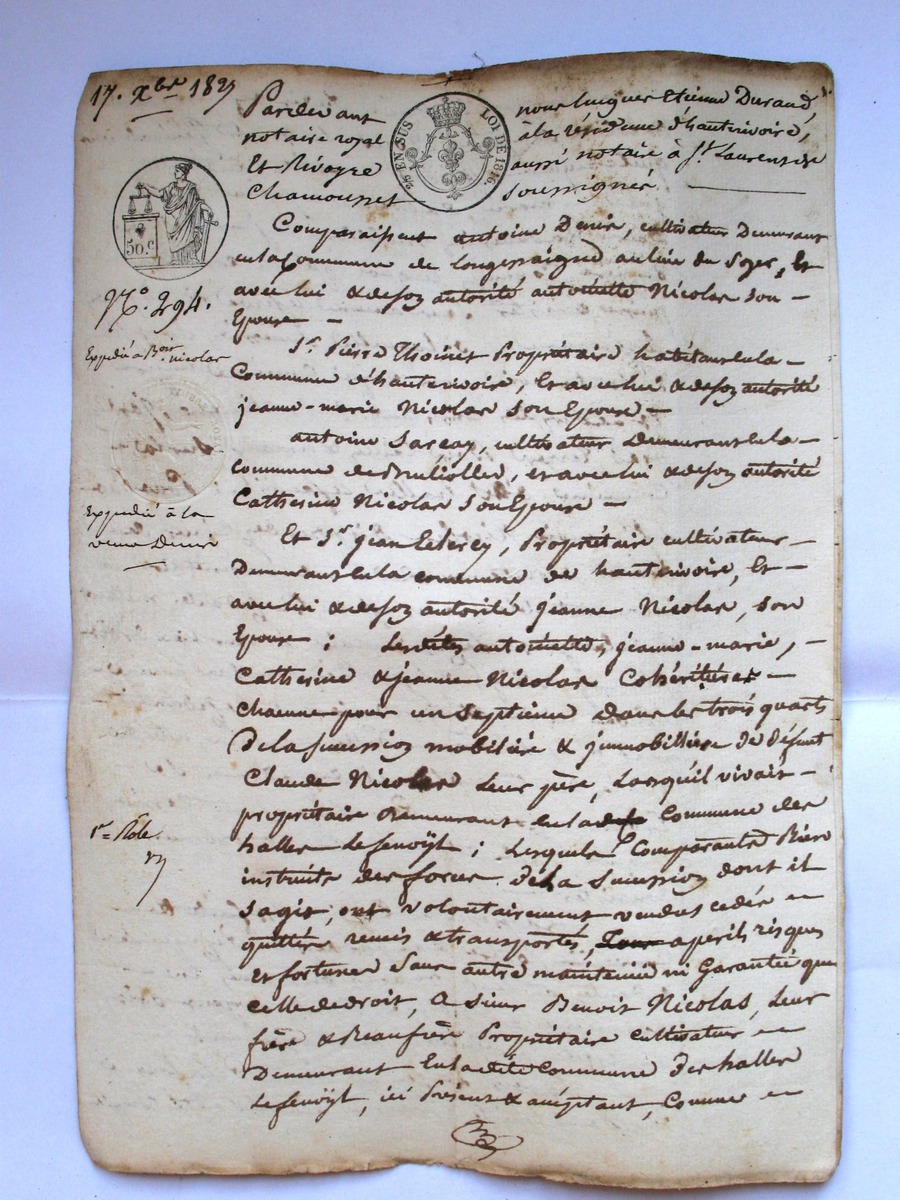 17. Xbre 182
Pardevant nous Lucques Etienne Durand,
notaire royal a la résidence d'hauterivoire,
Et Rivoyre aussi notaire à St. Laurent de
Chamousset soussignés
EN SUS
LOI DE 1816.
50.c
N.o 294.
Comparaissent antoine Denis, cultivateur Demeurant
en la Commune de Longessaigne au lieu du Et
avec lui & de son autorité antoinette Nicolas son
Epouse
Sr. Pierre Thoinet Propriétaire habitant en la
Commune d'hauterivoire, Et avec lui & de son autorité
jeanne-marie Nicolas son Epouse
antoine Sarcay, cultivateur Demeurant en la
commune de Bruliolles, et avec lui & de son autorité
Catherine Nicolas son Epouse
Et Sr. jean Propriétaire cultivateur
Demeurant en la commune de hauterivoire, Et
avec lui & de son autorité jeanne Nicolas, son
Epouse ; Lesdites antoinette, jeanne-marie,
Catherine & jeanne Nicolas Cohéritières
Chacune pour un Septieme dans les trois quarts
de la succession mobilière & jmmobilière de défunt
Claude Nicolas Leur père, Lorsqu'il vivait
propriétaire Demeurant en la Commune des
halles Le fenoÿl ; Lesquels Comparants Bien
instruits des forces de la Succession dont il
sagit, ont volontairement vendus cedés
quittés remis & transportés, a perils risques
Et fortunes Sans autre maintenüe ni Garantie que
celle de droit, a Sieur Benoit Nicolas, Leur
frère & Beaufrère Propriétaire cultivateur
Demeurant En la dite Commune des halles
Le fenoÿl, ici Présent & acceptant, Comme
Expedié a Boit nicolas
Expedié à la
veuve Denis
1er Role.